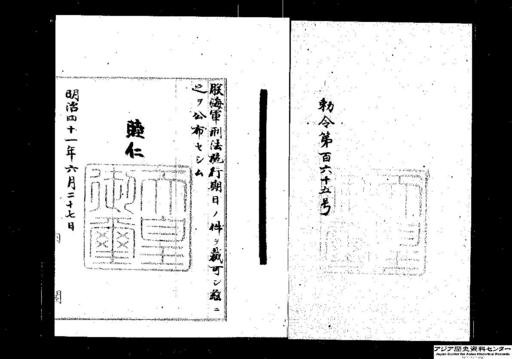 勅令第百六十五号
朕海軍刑法施行期日ノ件ヲ裁可シ茲ニ
之ヲ公布セシム
睦仁
天皇
御璽
明治四十一年六月二十七日
アジア歴史資料センター
Japan Center for Asian Historical Records